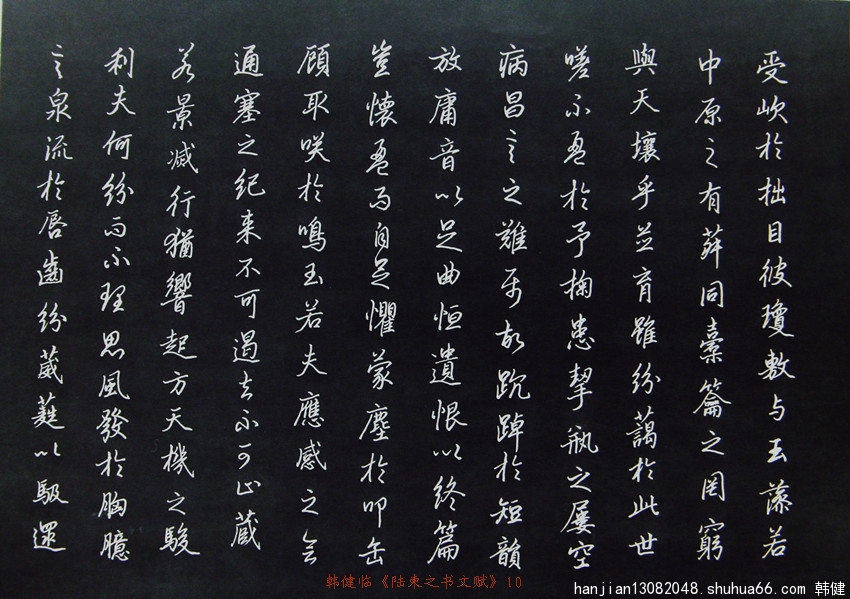 受欰於拙目彼瓊敷与玉藻若
中原之有菽同橐籥之罔窮
與天壤乎並育雖紛藹於此世
嗟不盈於予掬患挈瓶之屢空
病昌言之難属故踸踔於短韻
放庸音以足曲恒遺恨以終篇
豈懷盈而自足懼蒙塵於叩缶
顧取咲於鳴玉若夫應感之會
通塞之紀来不可遏去不可止蔵
若景滅行猶響起方天機之駿
利夫何紛而不理思風發於胸臆
言泉流於唇齒紛葳蕤以馺遝
韩健临《陆柬之书文赋》10
hanjian13082048.shuhua66.com 韩健